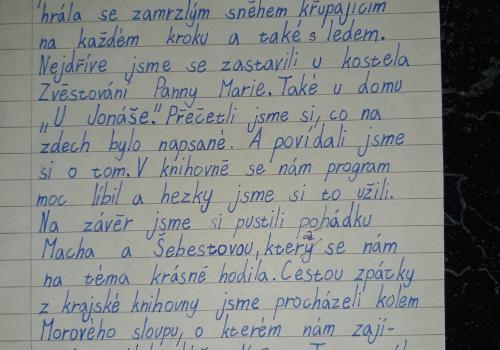 hrála se zamrzlým sněhem křupajícím
na každém kroku a také s ledem.
Nejdříve jsme se zastavili u kostela
Zvěstování Panny Marie. Také u domu
„U Jonáše." Přečetli jsme si, co na
zdech bylo napsané. A povídali jsme
si o tom. V knihovně se nám program
moc líbil a hezky jsme si to užili.
Na závěr jsme si pustili pohádku
Macha a Šebestovou, která se nám
na téma krásně hodila. Cestou zpátky
z krajské knihovny jsme procházeli kolem
Morového sloupu, o kterém nám zají-